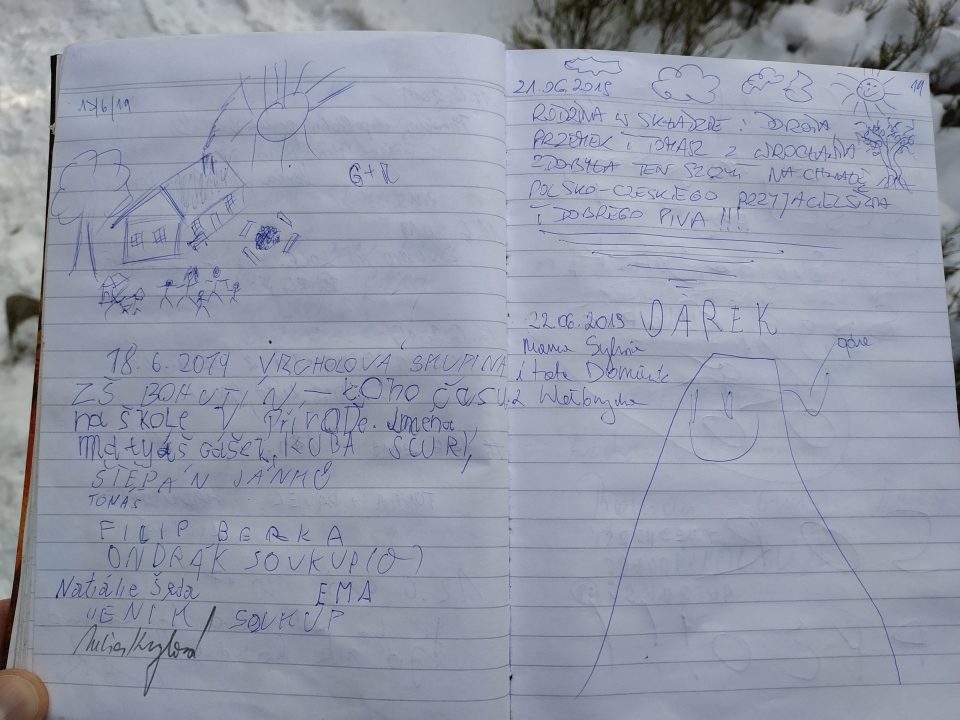 18/6/19
G+R
18. 6. 2019 VRCHOLOVÁ SKUPINA
ZŠ BOHUTÍN, – toho času
na škole V PřírODě. Jména
Matyáš Gášek, KUBA ŠČURÝ,
ŠTĚPÁN JÁNKŮ
TOMÁŠ
FILIP BERKA
ONDRÁK SOUKUP
Natálie Šeda EMA
JENIK SOUKUP
21.06.2019
19
RODZINA W SKŁADZIE : DOROTA
PRZEMEK i TOMASZ Z WROCŁAWIA
ZDOBYŁA TEN SZCZYT NA CHWAŁĘ
POLSKO-CZESKIEGO PRZYJACIELSTWA
I DOBREGO PIVA !!!
22.06.2019 DAREK
Mama Sylwia
i tata Dominik
z Wałbrzycha
góra